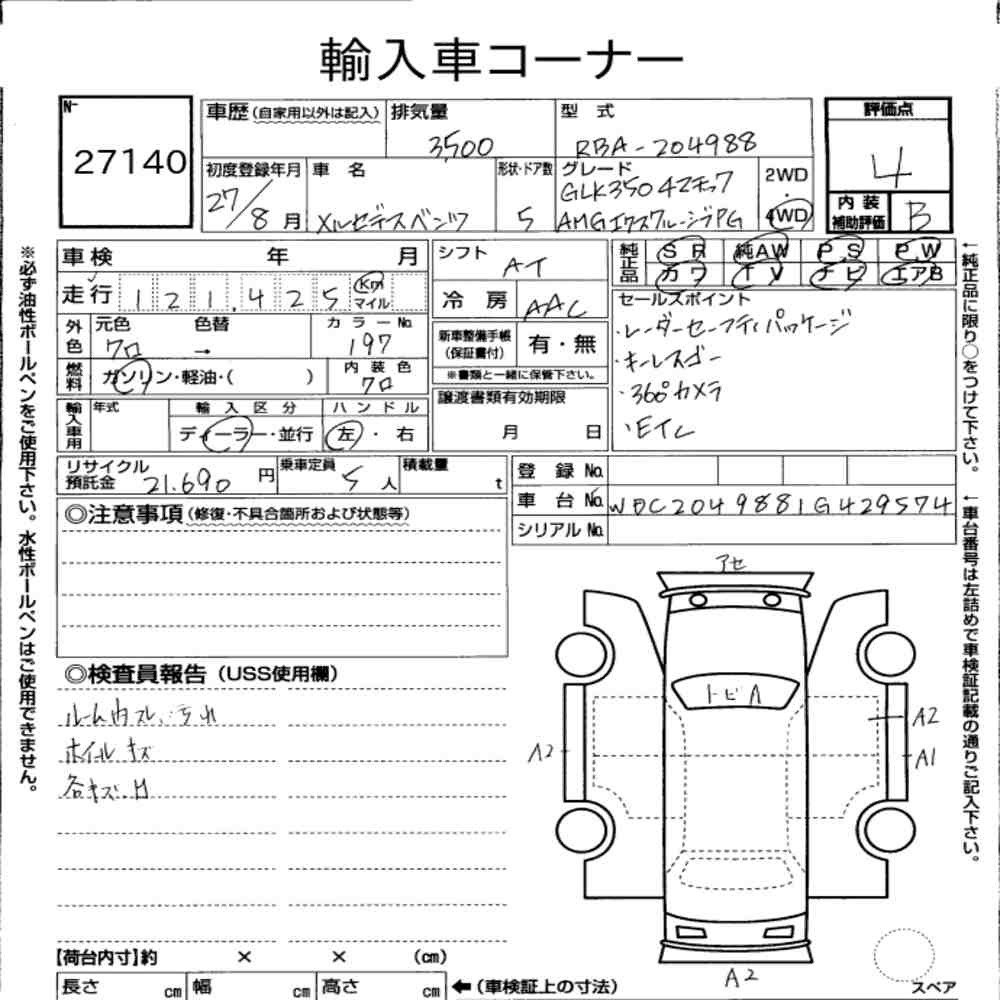 輸入車コーナー
№
27140
車歴(自家用以外は記入)
排気量
3,500
型 式
RBA-204988
評価点
4
内装
補助評価
B
初度登録年月
27/8月
車 名
メルセデスベンツ
形状・ドア数
5
グレード
GLK350 4マチック
AMGエクスクルーシブPG
2WD
・
4WD
車検 年 月
走行 121,425 Km
マイル
外色
元色 色替
クロ →
カラーNo.
197
燃料
ガソリン・軽油・( )
内装色
クロ
輸入車用
年式
輸入区分
ディーラー・並行
ハンドル
左・右
シフト
AT
冷房
AAC
新車整備手帳
(保証書付)
有・無
※書類と一緒に保管下さい。
譲渡書類有効期限
月 日
純正品
SR 純AW PS PW
カワ TV ナビ エアB
セールスポイント
・レーダーセーフティパッケージ
・キーレスゴー
・360°カメラ
・ETC
リサイクル
預託金 21,690 円
乗車定員 5人
積載量 t
登録No.
車台No. WDC2049881G429574
シリアルNo.
◎注意事項(修復・不具合箇所および状態等)
◎検査員報告(USS使用欄)
ルーム内スレ、汚れ
ホイルキズ
各キズ.H
アセ
トビA
A2
A2
A1
A2
スペア
【荷台内寸】約 × × (cm)
長さ cm
幅 cm
高さ cm
←(車検証上の寸法)
※必ず油性ボールペンをご使用下さい。水性ボールペンはご使用できません。
←純正品に限り○をつけて下さい。
←車台番号は左詰めで車検証記載の通りご記入下さい。